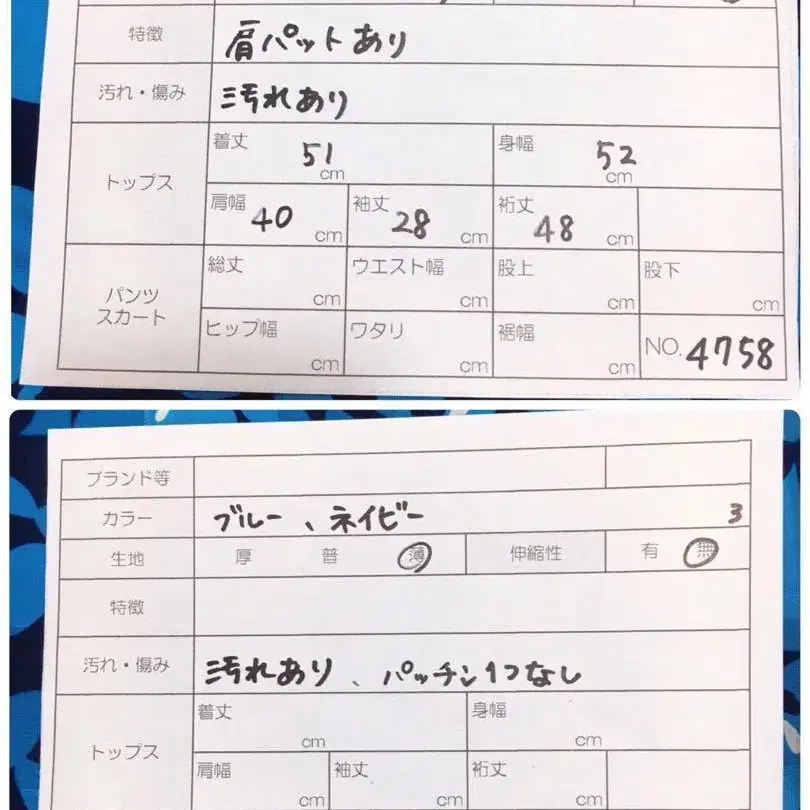 特徴 肩パットあり
汚れ・傷み 汚れあり
トップス 着丈 51 cm 身幅 52 cm
肩幅 40 cm 袖丈 28 cm 裄丈 48 cm
パンツ スカート 総丈 cm ウエスト幅 cm 股上 cm 股下 cm
ヒップ幅 cm ワタリ cm 裾幅 cm NO. 4758
ブランド等
カラー ブルー、ネイビー 3
生地 厚 普 薄 伸縮性 有 無
特徴
汚れ・傷み 汚れあり、パッチン1つなし
トップス 着丈 cm 身幅 cm
肩幅 cm 袖丈 cm 裄丈 cm